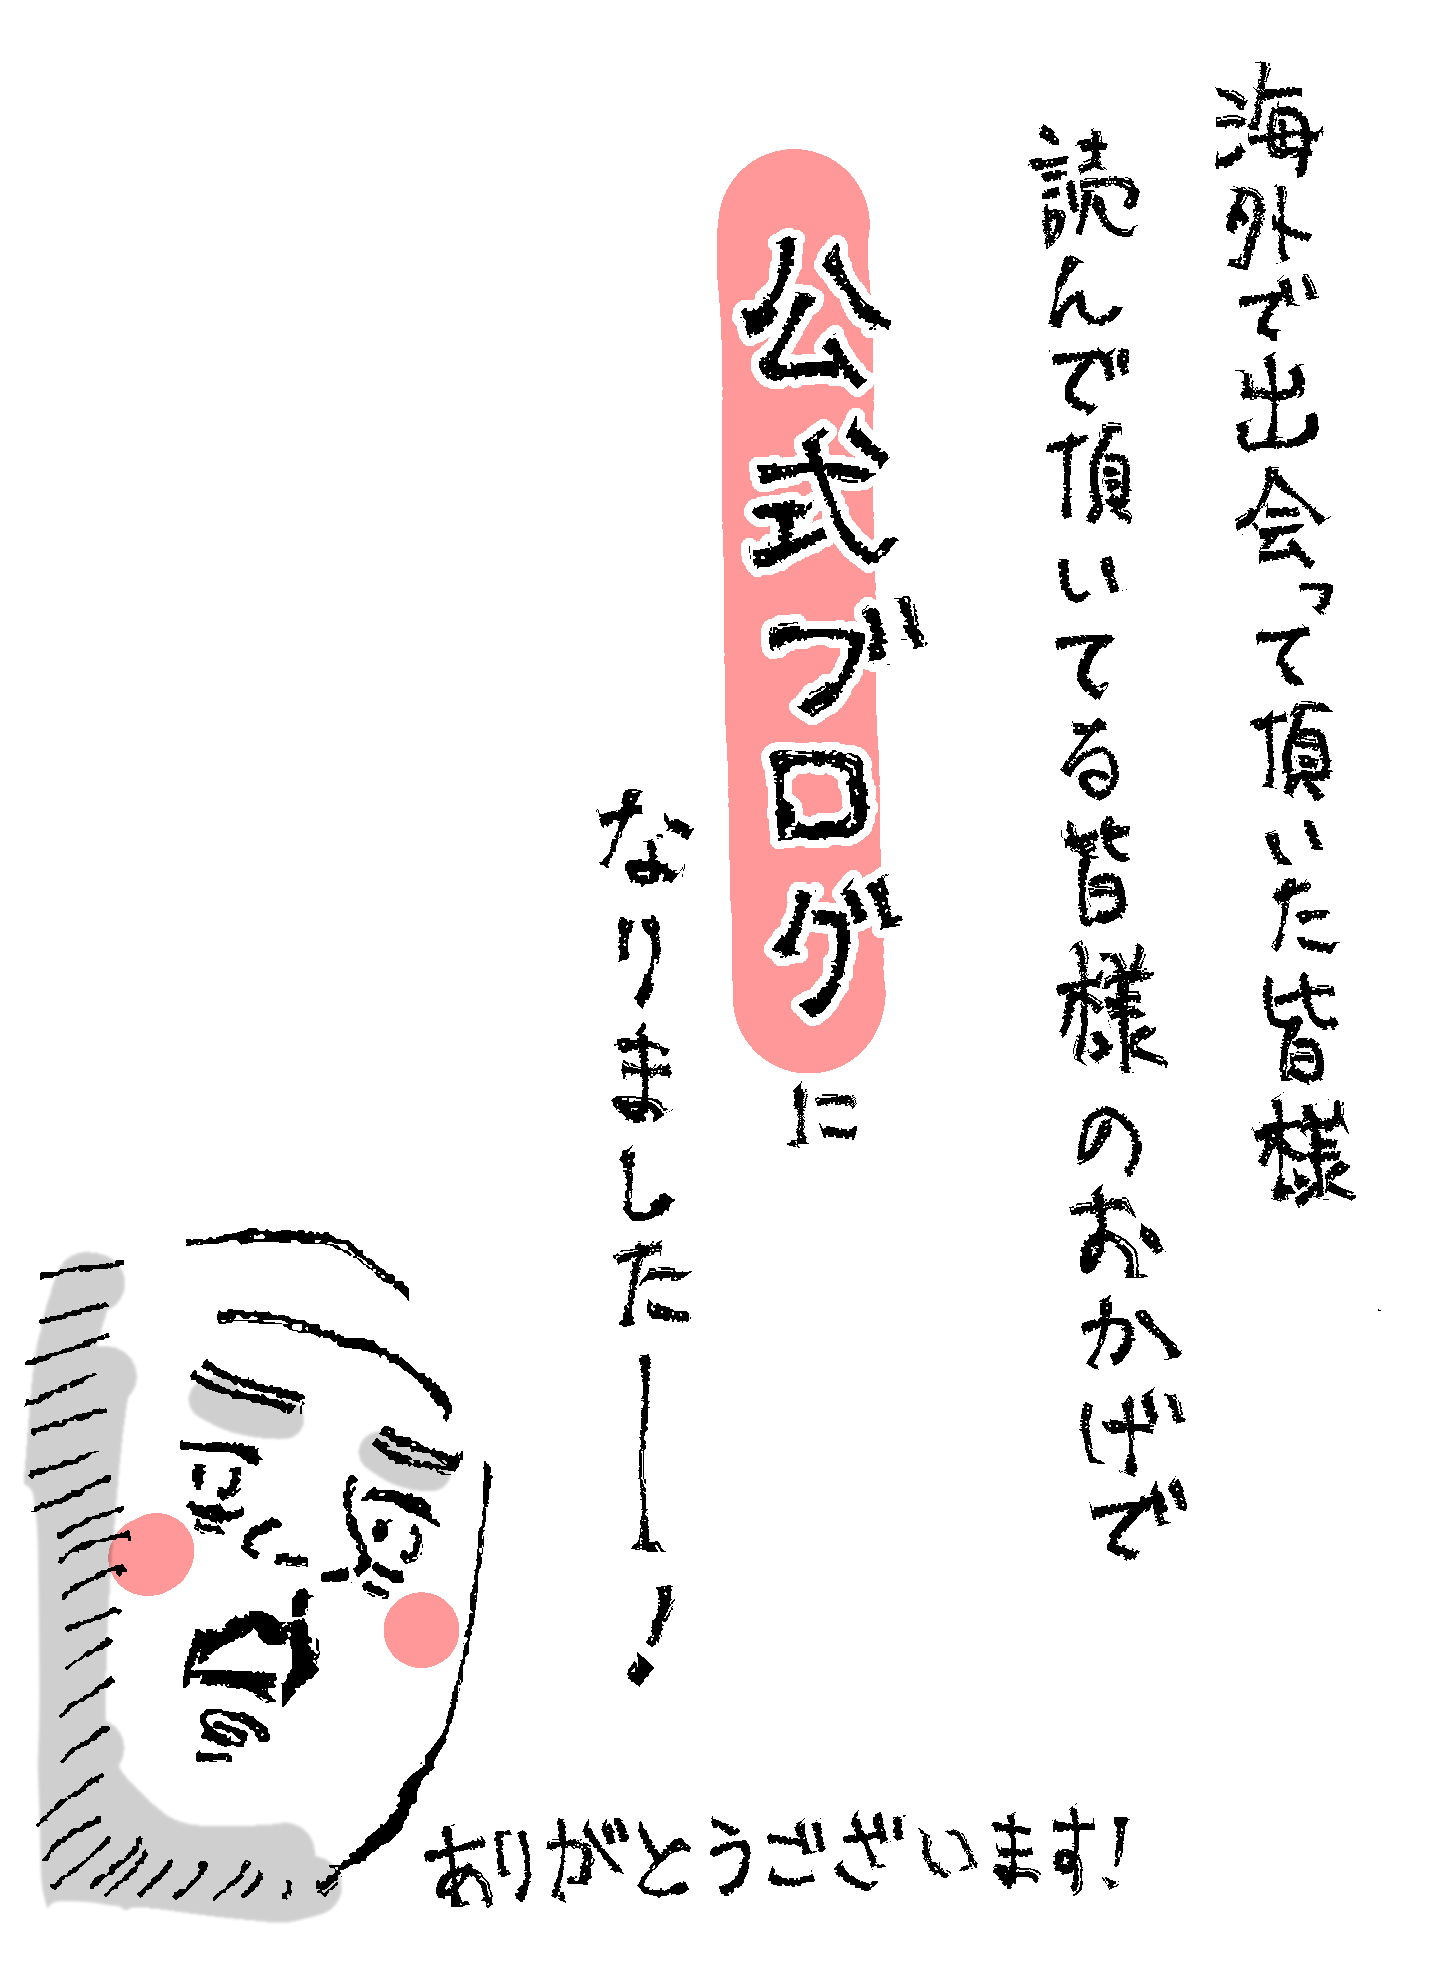 海外で出会って頂いた皆様
読んで頂いてる皆様のおかげで
公式ブログに
なりましたー!
ありがとうございます!